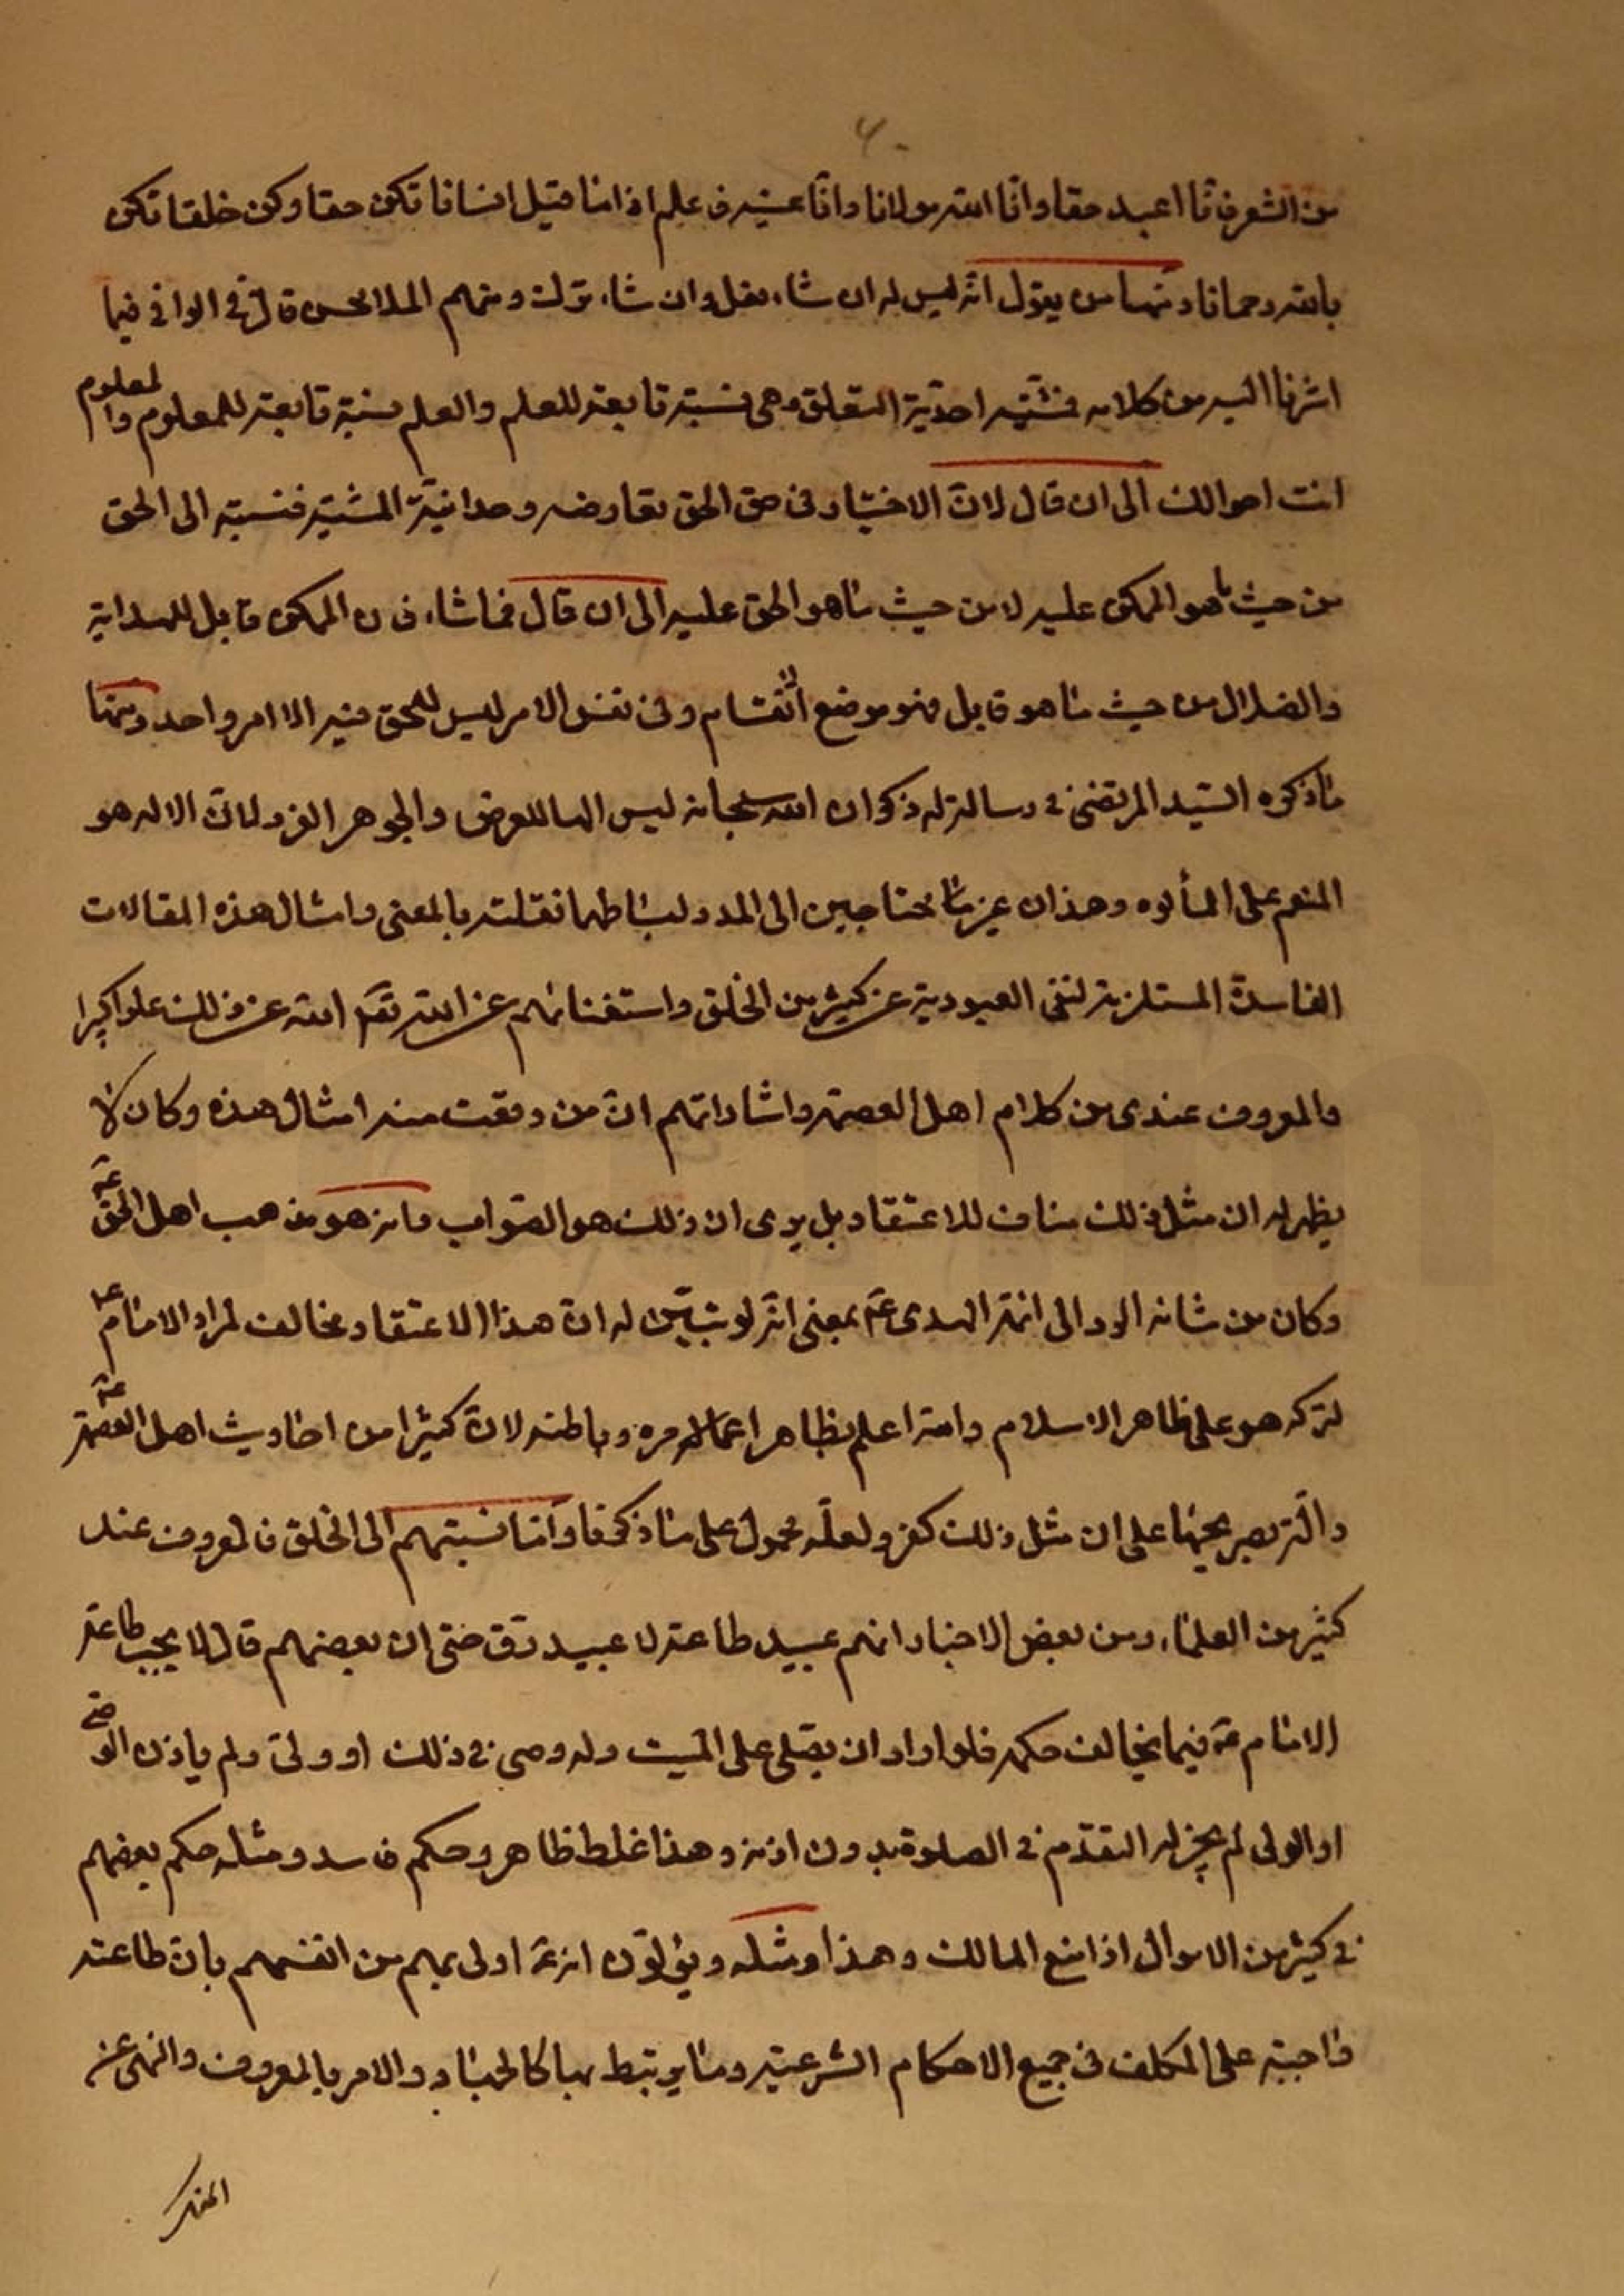 من الشعر فانّا اعبد حقا وانّا الله مولانا وانّا عينه فاعلم اذا ما قيل انسانا تكن حقا وكن خلقا تكن
بالله رحمانا ومنها من يقول انّه ليس له ان شاء فعل وان شاء ترك ومنهم الملا محسن قال في الوافي فيما
اشرنا اليه من كلامه فمشيّته احديّة التعلق وهي نسبة تابعة للعلم والعلم نسبة تابعة للمعلوم والمعلوم
انت احوالك الى ان قال لانّ الاختيار في حق الحق تعارضه وحدانيّة المشيّة فنسبته الى الحق
من حيث ما هو الممكن عليه لا من حيث ما هو الحق عليه الى ان قال فما شاء فان الممكن قابل للهداية
والضلال من حيث ما هو قابل فهو موضع الانقسام وفي نفس الامر ليس للحق فيه الا امر واحد ومنها
ما ذكره السّيد المرتضى في رسالة له ذكر ان الله سبحانه ليس الها للعرض والجوهر الفرد لانّ الاله هو
المنعم على المألوه وهذان غير محتاجين الى المدد لبساطهما نقلته بالمعنى وامثال هذه المقالات
الفاسدة المستلزمة لنفى العبودية عن كثير من الخلق واستغنائهم عن الله تعالى الله عن ذلك علوا كبيرا
والمعروف عندى من كلام اهل العصمة واشاراتهم انّ من وقعت منه امثال هذه وكان لا
يظهر له ان مثل ذلك مناف للاعتقاد بل يرى ان ذلك هو الصّواب وانه هو مذهب اهل الحقّ عم
وكان من شانه الرد الى ائمة الهدى عم بمعنى انّه لو تبيّن له انّ هذا الاعتقاد مخالف لمراد الامام ع
لتركه هو على ظاهر الاسلام والله اعلم بظاهر امره وباطنه لانّ كثيرا من احاديث اهل العصمة عم
دالّة بصريحها على ان مثل ذلك كفر ولعلّه محمول على ما ذكرنا وامّا نسبتهم الى الخلق فالمعروف عند
كثير من العلماء ومن بعض الاخبار انهم عبيد طاعة لا عبيد رق حتى ان بعضهم قال لا يجب طاعة
الامام ع فيما يخالف حكمه فلو اراد ان يصلى على الميّت وله وصى في ذلك او ولىّ ولم ياذن الوصي
او الولى لم يجز له التقدّم في الصلوة بدون اذنه وهذا غلط ظاهر وحكم فاسد ومثله حكم بعضهم
في كثير من الاموال اذا منع المالك وهذا ومثله ويؤلون انه ع اولى بهم من انفسهم بانّ طاعته
واجبة على المكلف في جميع الاحكام الشرعية وما يرتبط بها كالجهاد والامر بالمعروف والنهى عن
المنكر